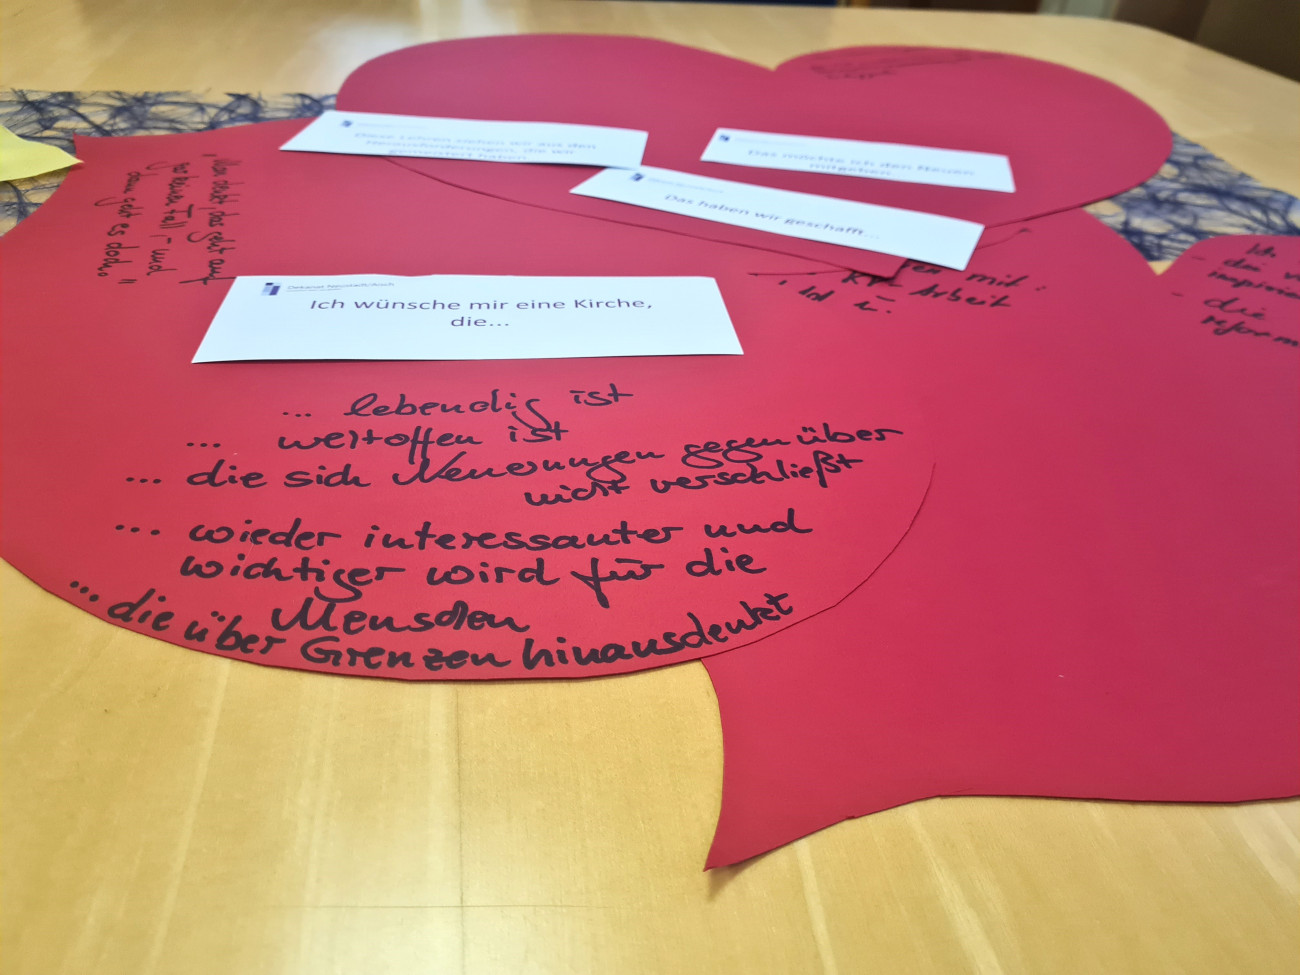 Diese Lehren ziehen wir aus den
Herausforderungen, die wir
gemeistert haben
Das möchte ich den Neuen
mitgeben
Das haben wir geschafft...
"Man denkt, das geht auf
gar keinen Fall, - und
dann geht es doch."
mit
Arbeit
Ich
inspirie
- die
reform
Dekanat Neustadt/Aisch
Ich wünsche mir eine Kirche,
die...
... lebendig ist
... weltoffen ist
... die sich Neuerungen gegenüber
nicht verschließt
... wieder interessanter und
wichtiger wird für die
Menschen
... die über Grenzen hinausdenkt